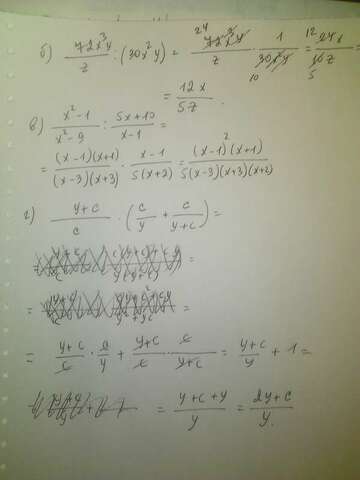 б) 72x³y/z : (30x²y) = 24 72x³y/z · 1/30x²y 10 = 12 24x/10z 5 =
= 12x/5z .
в) x²-1/x²-9 : 5x+10/x-1 =
= (x-1)(x+1)/(x-3)(x+3) · x-1/5(x+2) = (x-1)²(x+1)/5(x-3)(x+3)(x+2)
г) y+c/c · (c/y + c/y+c) =
=
= =
= y+c/c · c/y + y+c/c · c/y+c = y+c/y + 1 =
= y+c+y/y = 2y+c/y .